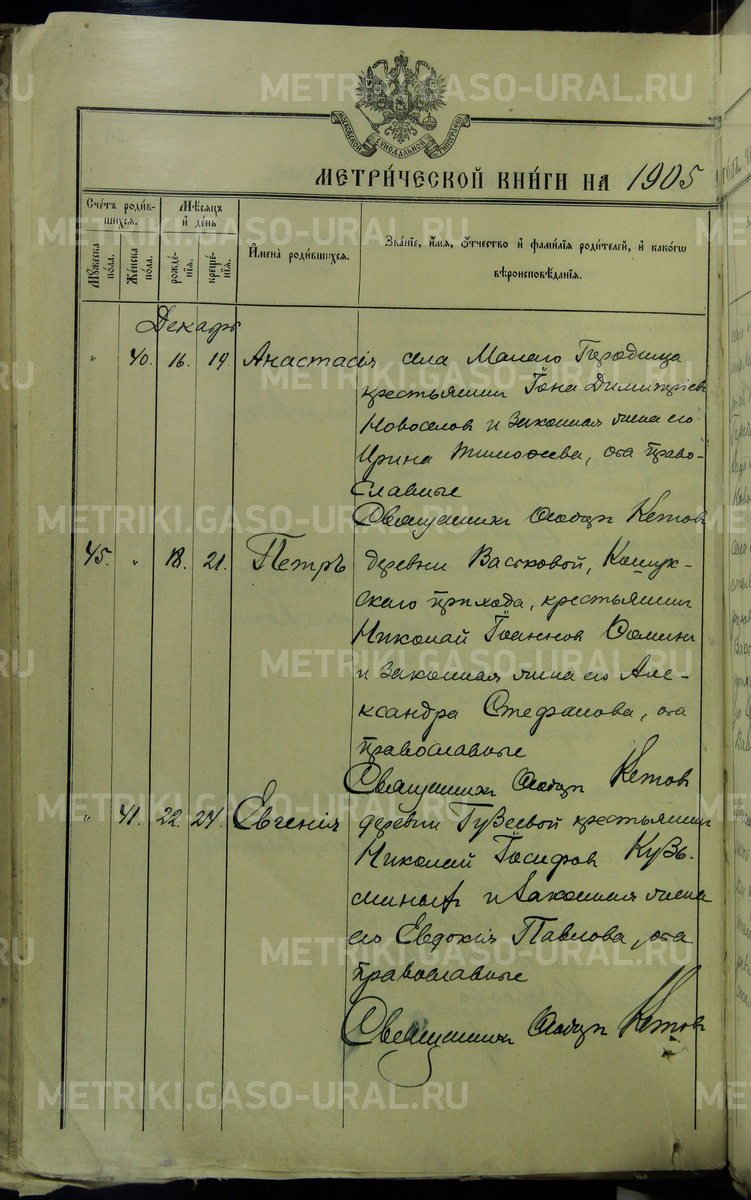 METRIKI.GASO-URAL.RU
МОСКОВСКОЙ СѴНОДАЛЬНОЙ ТИПОГРАФІИ
МЕТРИ́ЧЕСКОЙ КНИ́ГИ НА 1905
Сче́тъ роди́в-
шихся.
Мѣ́сяцъ
и҆ де́нь
Мꙋ́жеска
по́ла.
Же́нска
по́ла.
рожде́-
нія.
креще́-
нія.
И҆мена̀ роди́вшихся.
Зва́ніе, и҆́мя, ѻ҆́тчество и҆ фами́лія роди́телей, и҆ како́гѡ
вѣроисповѣ́данія.
Декабрь
" 40. 16. 19. Анастасія села Малаго Городища
крестьянинъ Іона Димитріевъ
Новоселов и законная жена его
Ирина Тимоѳеева, оба право-
славные
Священникъ Кетовъ
45. " 18. 21. Петръ деревни Васьковой, Кошук-
скаго прихода, крестьянинъ
Николай Іоаннов Ѳоминъ
и законная жена его Але-
ксандра Стефанова, оба
православные
Священникъ Кетов
" 41. 22. 24. Евгенія деревни Гузеевой крестьянинъ
Николай Іосифов Кузь-
миныхъ и законная жена
его Евдокія Павлова, оба
православные
Священникъ Кетовъ